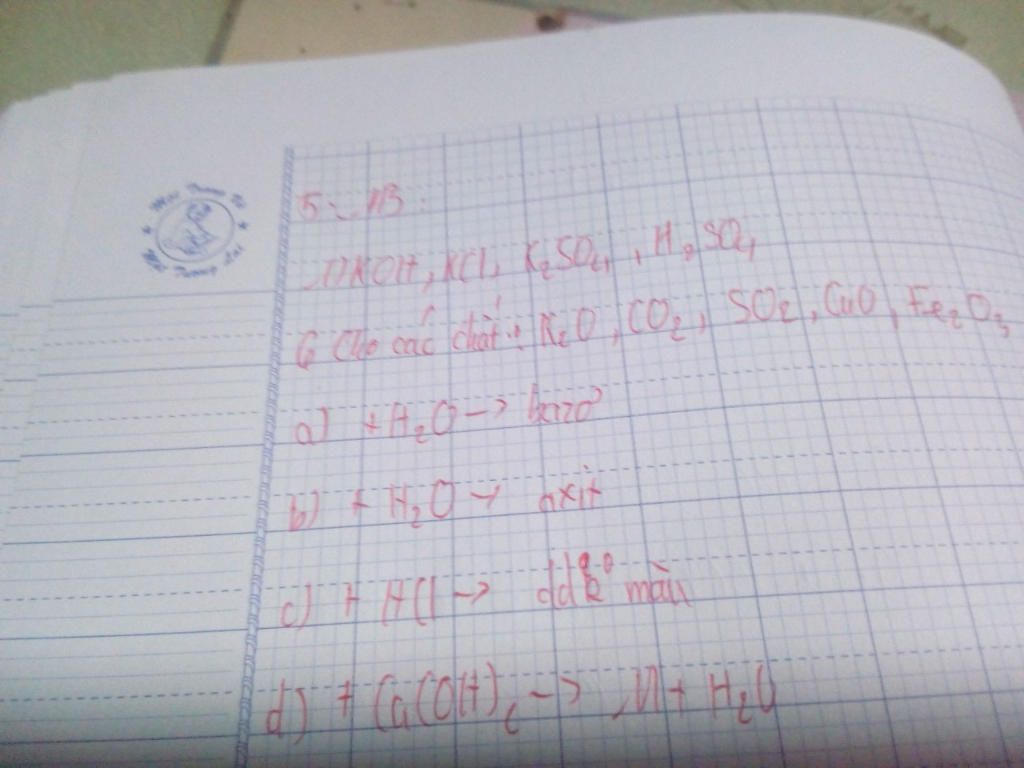 5. NB:
1) KOH, KCl, K₂SO₄, H₂SO₄
6 Cho các chất: K₂O, CO₂, SO₂, CuO, Fe₂O₃
a) + H₂O -> bazơ
b) + H₂O -> axit
c) + HCl -> dd k° màu
d) + Ca(OH)₂ -> M + H₂O